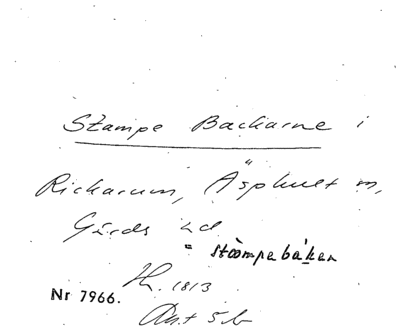 Stampe Backarne i
Rickarum, Äsphult m,
Gärds hd
= stòmpebákan
Nr 7966.
1813
Akt 5b